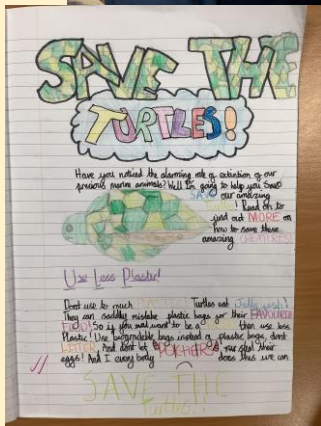 SAVE THE
TURTLES!
Have you noticed the alarming rate of extinction of our
precious marine animals? Well I'm going to help you Save
SAVE our amazing
! Read on to
find out MORE on
how to save these
amazing CREATURES!
Use Less Plastic!
Dont use to much PLASTIC! Turtles eat Jelly fish!
They can saddly mistake plastic bags for their FAVOURITE
FOOD! So if you want to be a then use less
Plastic! Use biogradable bags instead of plastic bags, dont
LITTER! And don't let POACHERS steal their
eggs! And if every body does this we can
SAVE THE
Turtles!